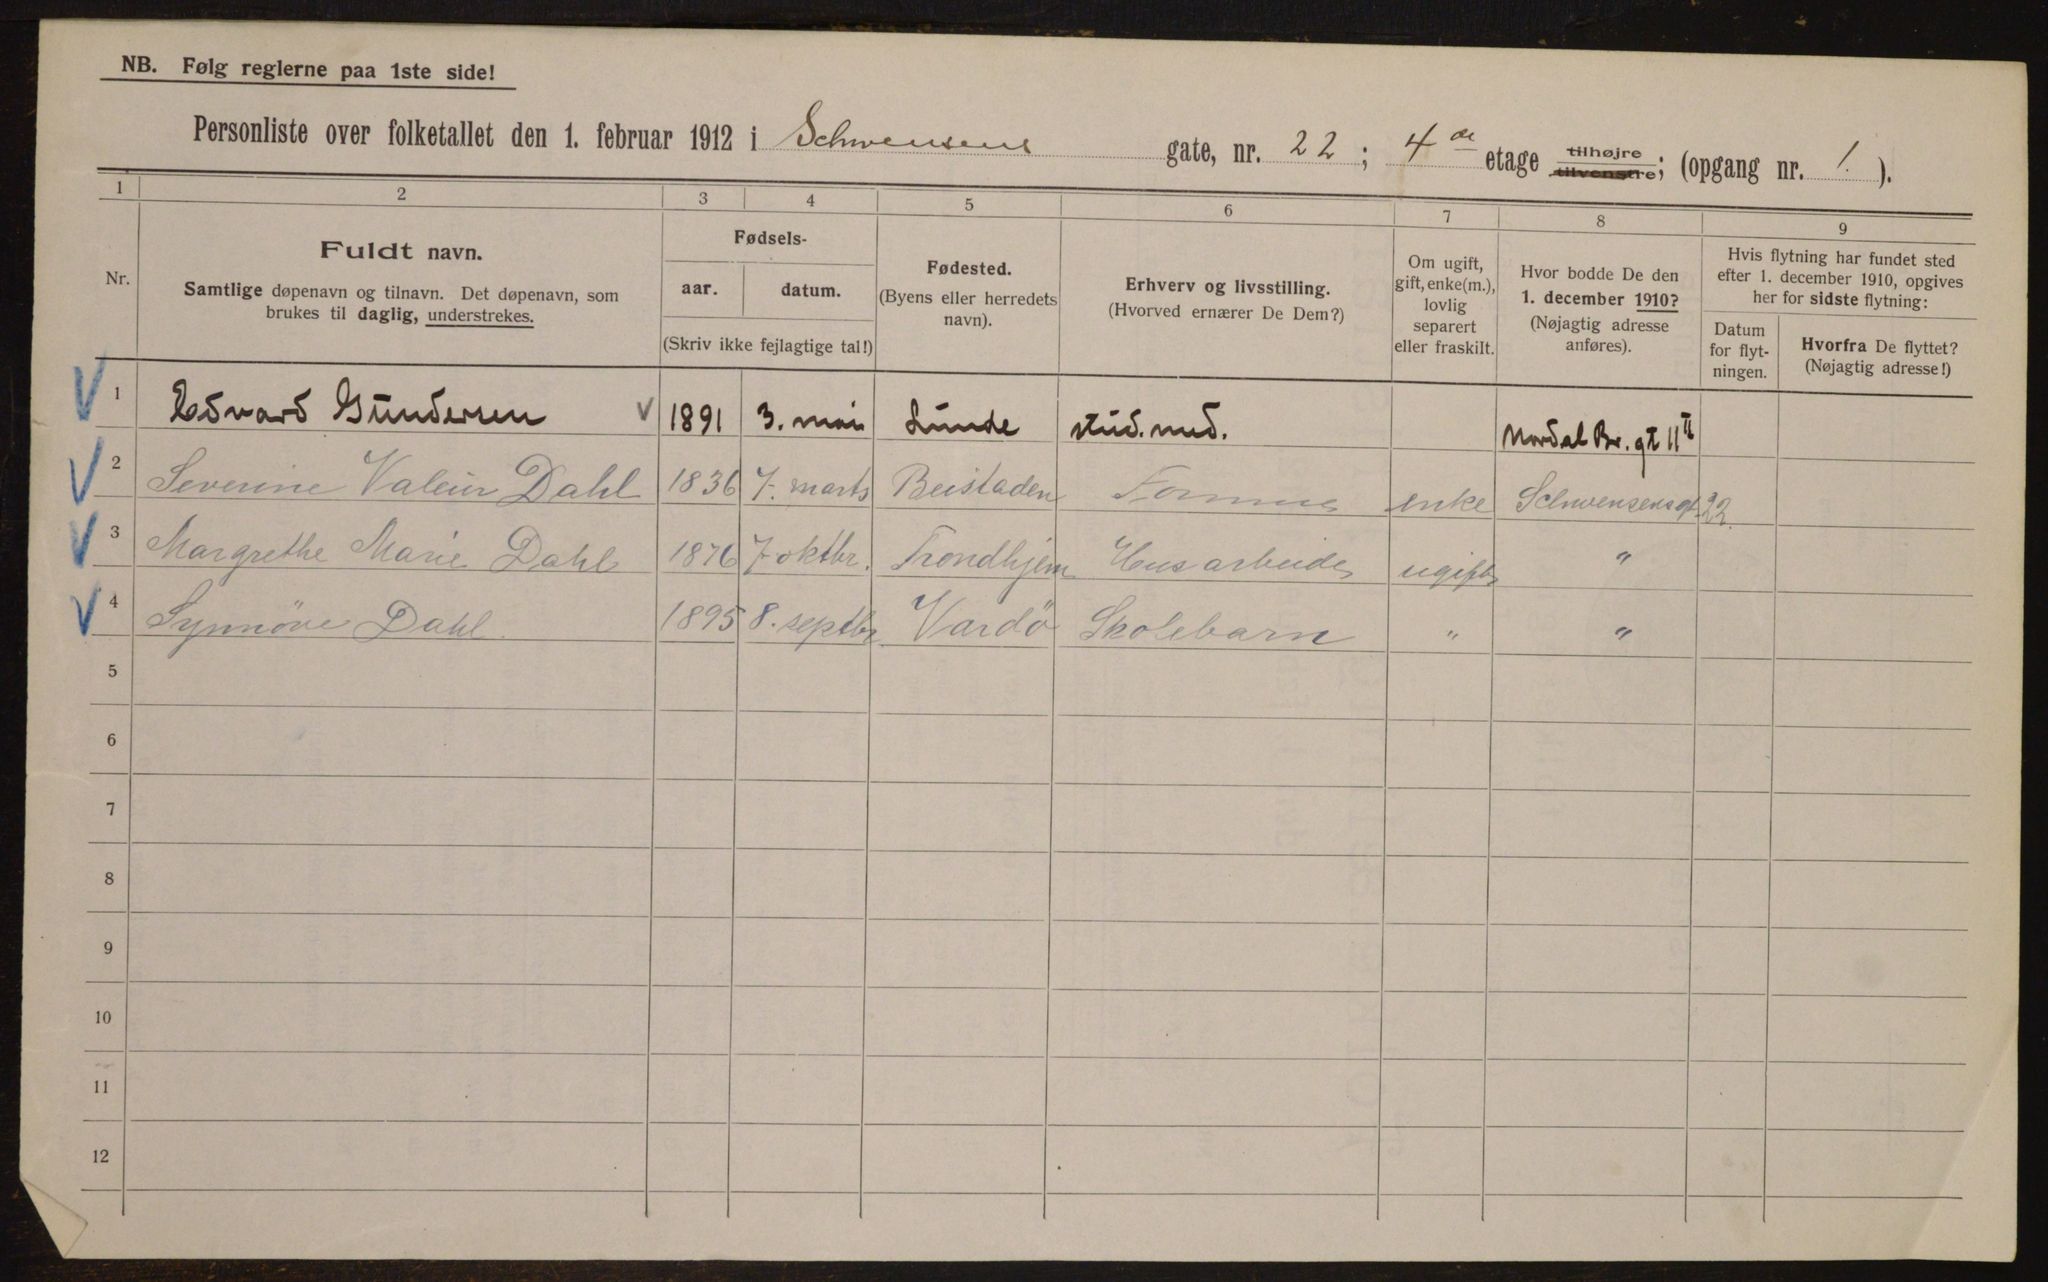 NB. Følg reglerne paa 1ste side!
Personliste over folketallet den 1. februar 1912 i Schwensens gate, nr. 22; 4de etage tilhøjre tilvenstre; (opgang nr. 1).
1 2 3 4 5 6 7 8 9
Nr.
Fuldt navn.
Samtlige døpenavn og tilnavn. Det døpenavn, som
brukes til daglig, understrekes.
Fødsels-
aar. datum.
(Skriv ikke fejlagtige tal!)
Fødested.
(Byens eller herredets
navn).
Erhverv og livsstilling.
(Hvorved ernærer De Dem?)
Om ugift,
gift, enke(m.),
lovlig
separert
eller fraskilt.
Hvor bodde De den
1. december 1910?
(Nøjagtig adresse
anføres).
Hvis flytning har fundet sted
efter 1. december 1910, opgives
her for sidste flytning:
Datum
for flyt-
ningen.
Hvorfra De flyttet?
(Nøjagtig adresse!)
1 Edvard Gundersen 1891 3. mai Lunde stud. med. Nordal Br. gt 11 II
2 Severine Valeur Dahl 1836 7. marts Beistaden enke Schwensensgt. 22.
3 Margrethe Marie Dahl 1876 7 oktbr. Trondhjem Husarbeide ugift "
4 Synnöve Dahl 1895 8. septbr Vardö Skolebarn " "
5
6
7
8
9
10
11
12